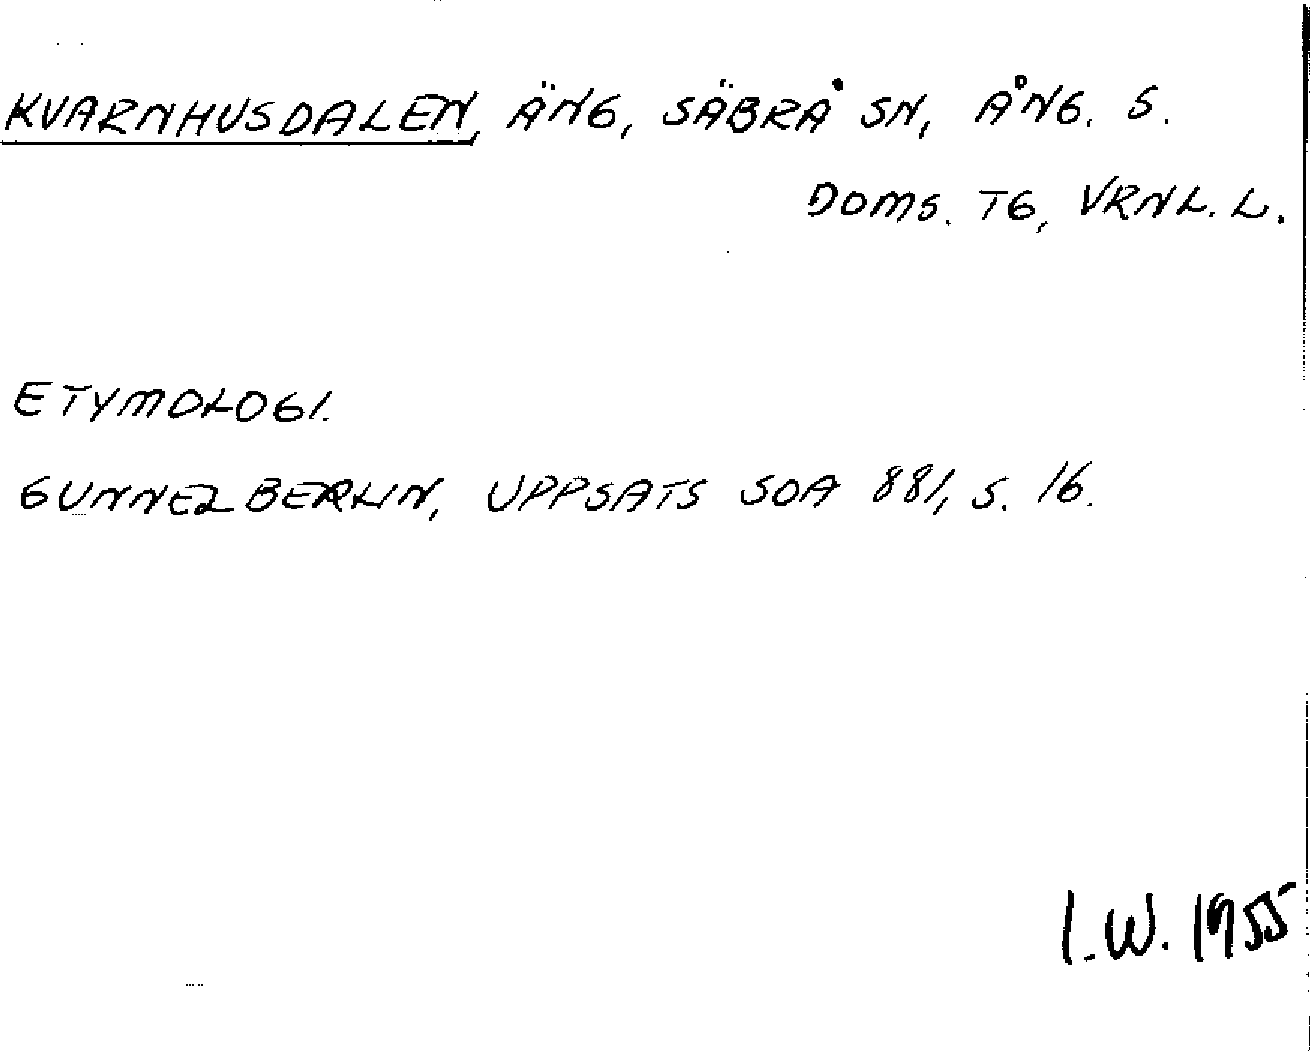 KVARNHUSDALEN, ÄNG, SÄBRÅ SN, ÅNG. S.
DOMS. TG, VRNL. L.
ETYMOLOGI.
GUNNEL BERLIN, UPPSATS SOA 881, S. 16.
I.W. 1955